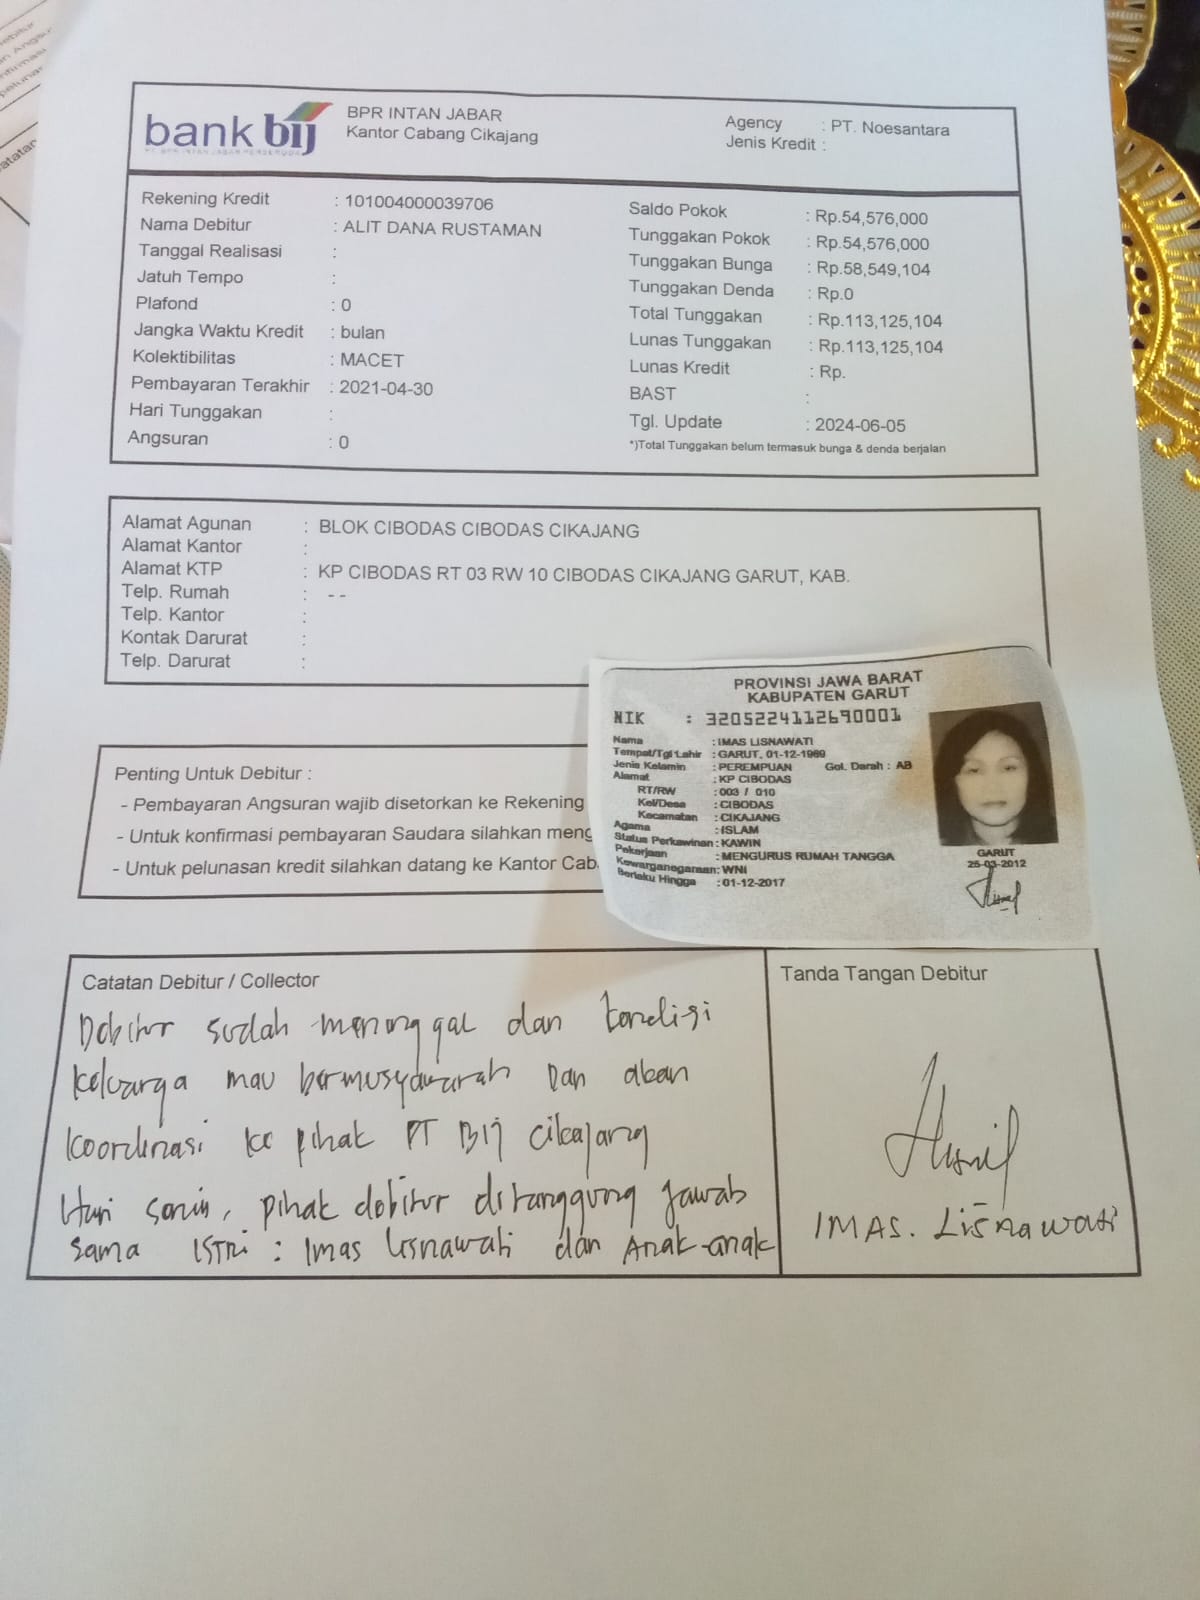 bank bij
PT. BPR INTAN JABAR PERSERODA
BPR INTAN JABAR
Kantor Cabang Cikajang
Agency : PT. Noesantara
Jenis Kredit :
Rekening Kredit : 101004000039706
Nama Debitur : ALIT DANA RUSTAMAN
Tanggal Realisasi :
Jatuh Tempo :
Plafond : 0
Jangka Waktu Kredit : bulan
Kolektibilitas : MACET
Pembayaran Terakhir : 2021-04-30
Hari Tunggakan :
Angsuran : 0
Saldo Pokok : Rp.54,576,000
Tunggakan Pokok : Rp.54,576,000
Tunggakan Bunga : Rp.58,549,104
Tunggakan Denda : Rp.0
Total Tunggakan : Rp.113,125,104
Lunas Tunggakan : Rp.113,125,104
Lunas Kredit : Rp.
BAST :
Tgl. Update : 2024-06-05
*)Total Tunggakan belum termasuk bunga & denda berjalan
Alamat Agunan : BLOK CIBODAS CIBODAS CIKAJANG
Alamat Kantor :
Alamat KTP : KP CIBODAS RT 03 RW 10 CIBODAS CIKAJANG GARUT, KAB.
Telp. Rumah : --
Telp. Kantor :
Kontak Darurat :
Telp. Darurat :
PROVINSI JAWA BARAT
KABUPATEN GARUT
NIK : 3205224112690001
Nama : IMAS LISNAWATI
Tempat/Tgl Lahir : GARUT, 01-12-1969
Jenis Kelamin : PEREMPUAN Gol. Darah : AB
Alamat : KP CIBODAS
RT/RW : 003 / 010
Kel/Desa : CIBODAS
Kecamatan : CIKAJANG
Agama : ISLAM
Status Perkawinan : KAWIN
Pekerjaan : MENGURUS RUMAH TANGGA
Kewarganegaraan : WNI
Berlaku Hingga : 01-12-2017
GARUT
26-03-2012
Penting Untuk Debitur :
- Pembayaran Angsuran wajib disetorkan ke Rekening
- Untuk konfirmasi pembayaran Saudara silahkan meng
- Untuk pelunasan kredit silahkan datang ke Kantor Cab
Catatan Debitur / Collector
Debitur sudah meninggal dan kondisi
keluarga mau bermusyawarah Dan akan
koordinasi ke pihak PT BIJ cikajang
Hari senin, pihak debitur ditanggung jawab
sama ISTRi : Imas Lisnawati dan Anak-anak
Tanda Tangan Debitur
IMAS. Lisnawati